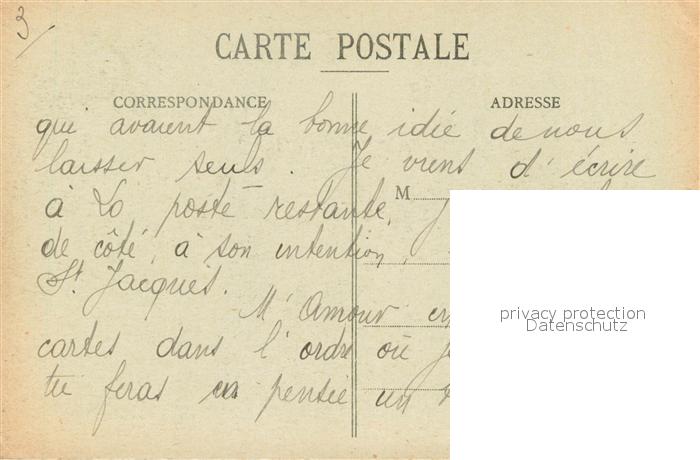 3
CARTE POSTALE
CORRESPONDANCE
ADRESSE
qui avaient la bonne idée de nous
laisser seuls. Je viens d'écrire
M
à La poste restante,
de côté, à son intention,
St. Jacques.
M'Amour
cartes dans l'ordre où
tu feras en pensée un
privacy protection
Datenschutz